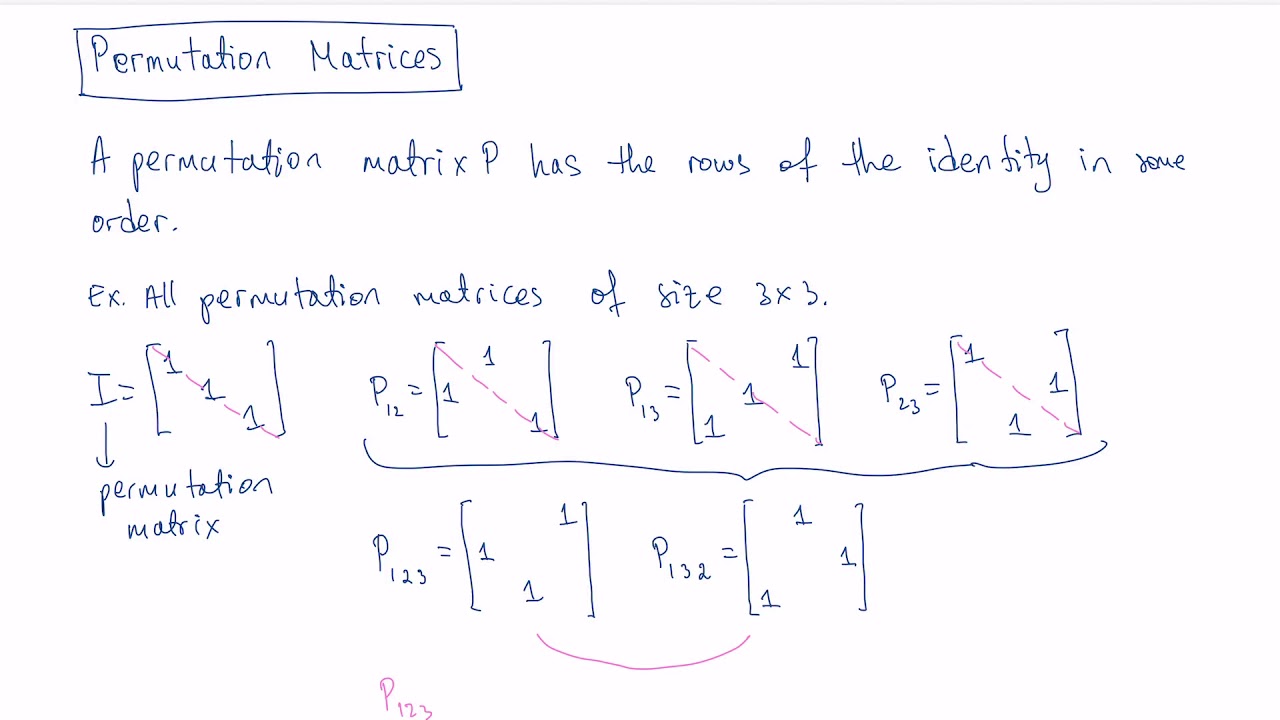 Permutation Matrices
A permutation matrix P has the rows of the identity in some
order.
Ex. All permutation matrices of size 3×3.
I = [1 1 1] P₁₂ = [1 1 1] P₁₃ = [1 1 1] P₂₃ = [1 1 1]
↓
permutation
matrix
P₁₂₃ = [1 1 1] P₁₃₂ = [1 1 1]
P₁₂₃